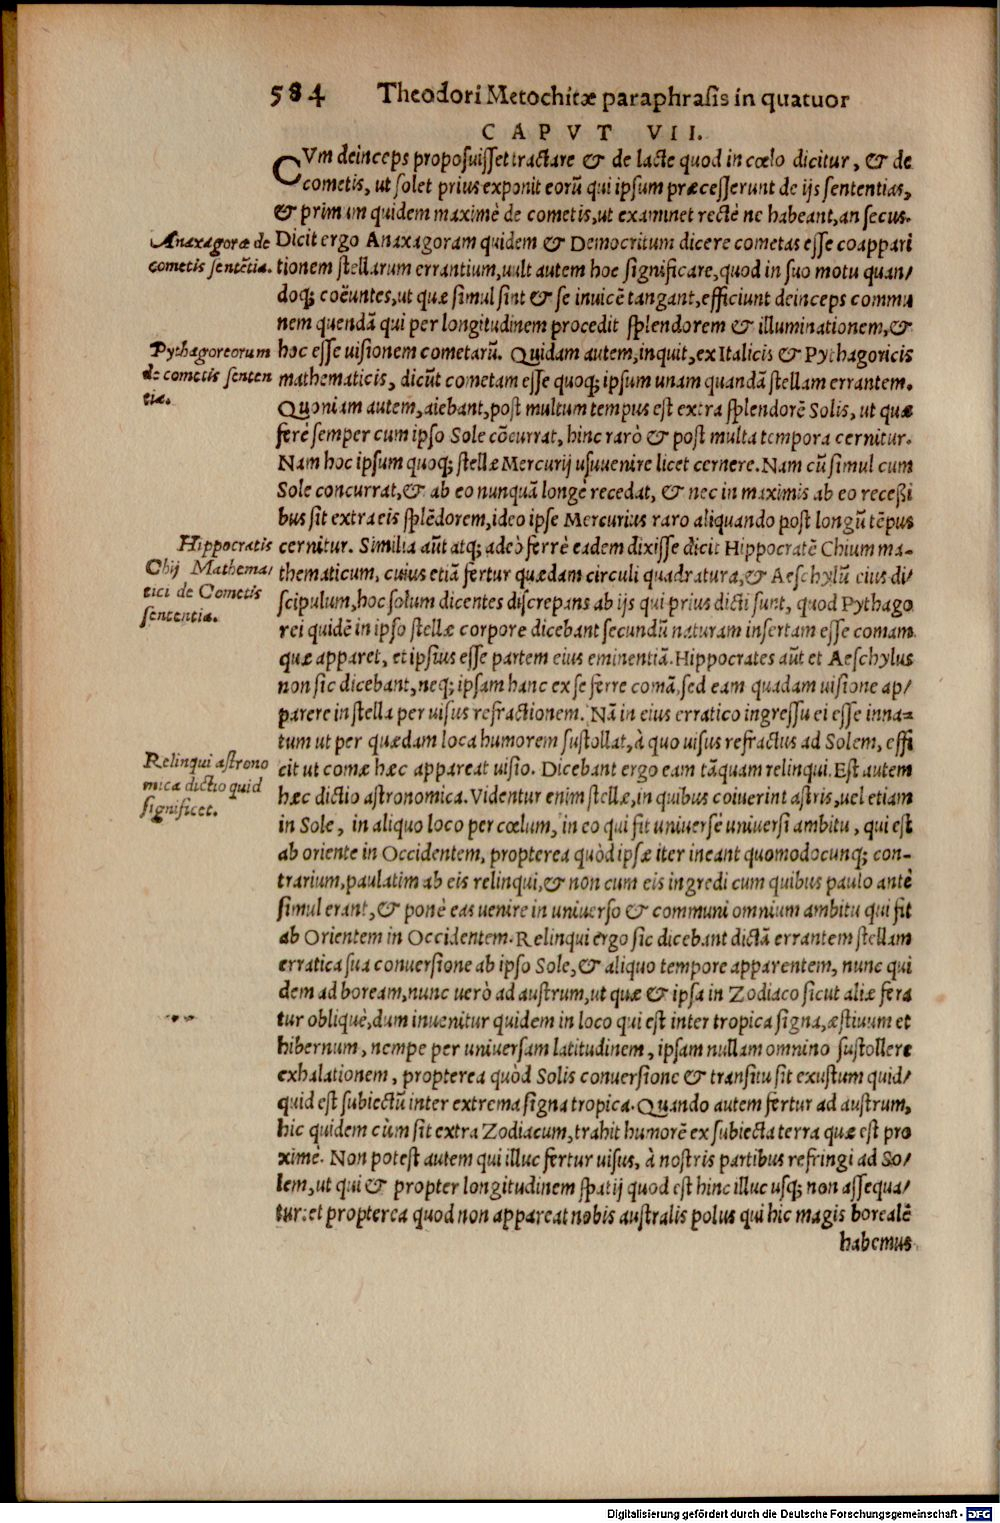 584 Theodori Metochitæ paraphrasis in quatuor
CAPVT VII.
CVm deinceps proposuisset tractare & de lacte quod in cœlo dicitur, & de
cometis, ut solet prius exponit eorū qui ipsum præcesserunt de ijs sententias,
& primum quidem maximè de cometis, ut examinet rectè ne habeant, an secus.
Anaxagoræ de
cometis sentētia.
Dicit ergo Anaxagoram quidem & Democritum dicere cometas esse coappari
tionem stellarum errantium, uult autem hoc significare, quod in suo motu quan/
doq; coëuntes, ut quæ simul sint & se inuicē tangant, efficiunt deinceps commu
nem quendā qui per longitudinem procedit splendorem & illuminationem, &
Pythagoreorum
de cometis senten
tiæ.
hoc esse uisionem cometarū. Quidam autem, inquit, ex Italicis & Pythagoricis
mathematicis, dicūt cometam esse quoq; ipsum unam quandā stellam errantem.
Quoniam autem, aiebant, post multum tempus est extra splendorē Solis, ut quæ
ferè semper cum ipso Sole cōcurrat, hinc rarò & post multa tempora cernitur.
Nam hoc ipsum quoq; stellæ Mercurij usuuenire licet cernere. Nam cū simul cum
Sole concurrat, & ab eo nunquā longè recedat, & nec in maximis ab eo receßi
bus sit extra eis splēdorem, ideo ipse Mercurius raro aliquando post longū tēpus
Hippocratis
Chij Mathema/
tici de Cometis
sententia.
cernitur. Similia aūt atq; adeò ferrè eadem dixisse dicit Hippocratē Chium ma-
thematicum, cuius etiā fertur quædam circuli quadratura, & Aeschylū eius di/
scipulum, hoc solum dicentes discrepans ab ijs qui prius dicti sunt, quod Pythago
rei quidē in ipso stellæ corpore dicebant secundū naturam insertam esse comam
quæ apparet, et ipsius esse partem eius eminentiā. Hippocrates aūt et Aeschylus
non sic dicebant, neq; ipsam hanc ex se ferre comā, sed eam quadam uisione ap/
parere in stella per uisus refractionem. Nā in eius erratico ingressu ei esse inna-
tum ut per quædam loca humorem sustollat, à quo uisus refractus ad Solem, effi
Relinqui astrono
mica dictio quid
significet.
cit ut comæ hæc appareat uisio. Dicebant ergo eam tāquam relinqui. Est autem
hæc dictio astronomica. Videntur enim stellæ, in quibus coiuerint astris, uel etiam
in Sole, in aliquo loco per cœlum, in eo qui fit uniuersè uniuersi ambitu, qui est
ab oriente in Occidentem, propterea quòd ipsæ iter ineant quomodocunq; con-
trarium, paulatim ab eis relinqui, & non cum eis ingredi cum quibus paulo antè
simul erant, & ponè eas uenire in uniuerso & communi omnium ambitu qui fit
ab Orientem in Occidentem. Relinqui ergo sic dicebant dictā errantem stellam
erratica sua conuersione ab ipso Sole, & aliquo tempore apparentem, nunc qui
dem ad boream, nunc uerò ad austrum, ut quæ & ipsa in Zodiaco sicut aliæ fera
tur obliquè, dum inuenitur quidem in loco qui est inter tropica signa, æstiuum et
hibernum, nempe per uniuersam latitudinem, ipsam nullam omnino sustollere
exhalationem, propterea quòd Solis conuersione & transitu sit exustum quid/
quid est subiectū inter extrema signa tropica. Quando autem fertur ad austrum,
hic quidem cùm sit extra Zodiacum, trahit humorē ex subiecta terra quæ est pro
ximè. Non potest autem qui illuc fertur uisus, à nostris partibus refringi ad So/
lem, ut qui & propter longitudinem spatij quod est hinc illuc usq; non assequa/
tur: et propterea quod non appareat nobis australis polus qui hic magis borealē
habemus
Digitalisierung gefördert durch die Deutsche Forschungsgemeinschaft - DFG